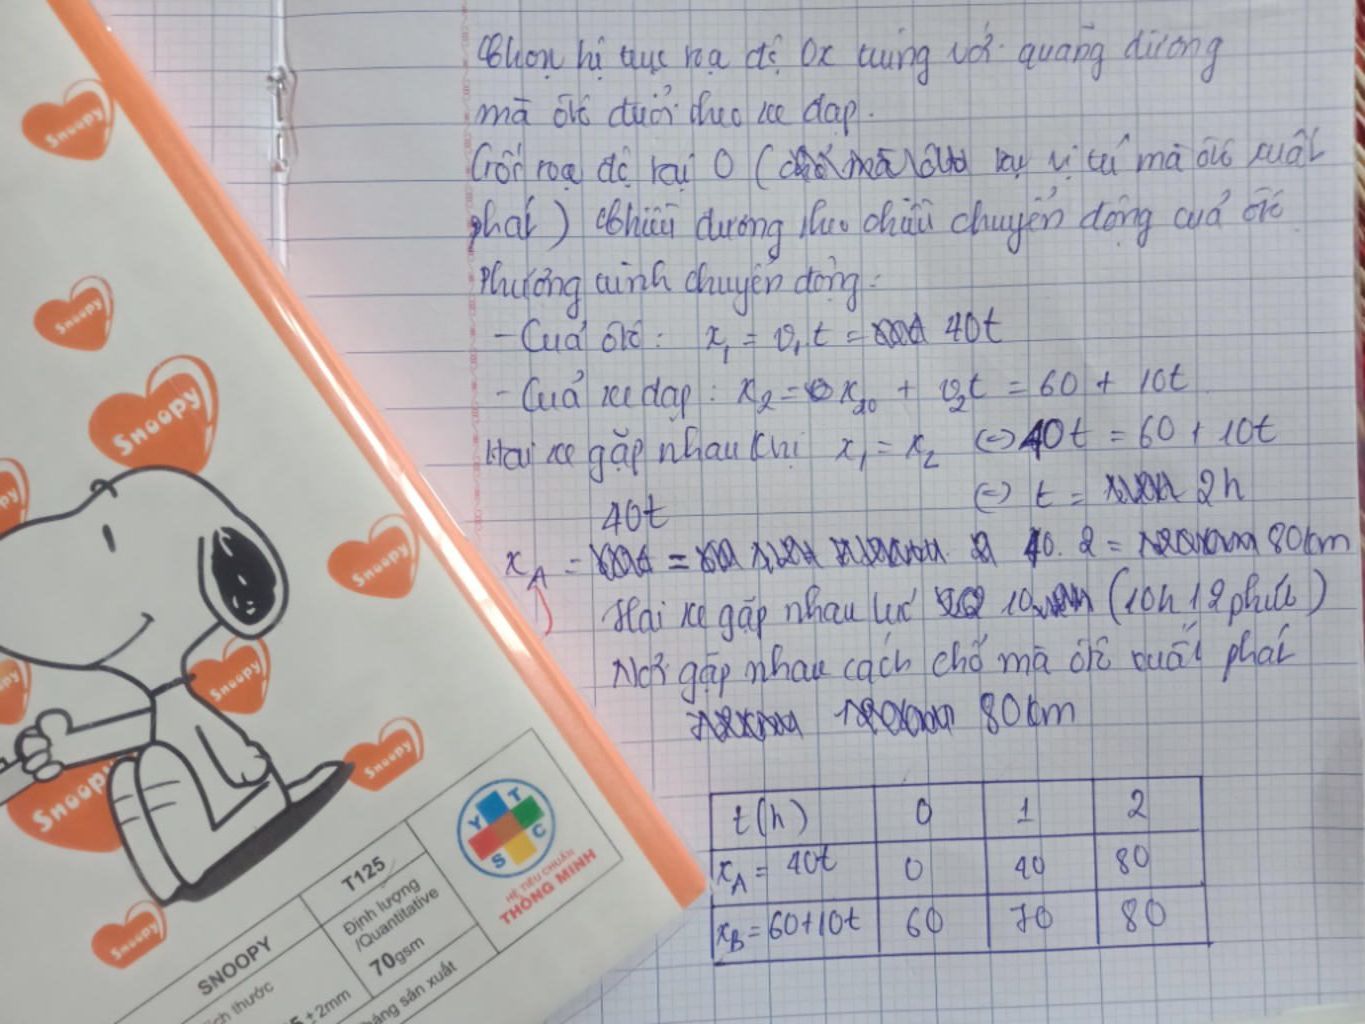 Chọn hệ trục toạ độ Ox trùng với quãng đường
mà ôtô đuổi theo xe đạp.
Gốc toạ độ tại O ( tại vị trí mà ôtô xuất
phát) Chiều dương theo chiều chuyển động của ôtô
Phương trình chuyển động:
- Của ôtô: x₁ = v₁t = 40t
- Của xe đạp: x₂ = x₂₀ + v₂t = 60 + 10t
Hai xe gặp nhau khi x₁ = x₂ (=) 40t = 60 + 10t
(=) t = 2h
40t
x_A = = 40. 2 = 80km
Hai xe gặp nhau lúc 10 (10h 12 phút)
Nơi gặp nhau cách chỗ mà ôtô xuất phát
80km
t(h) 0 1 2
x_A = 40t 0 40 80
x_B = 60+10t 60 70 80
Snoopy
Snoopy
Snoopy
Snoopy
Snoopy
Snoopy
Snoopy
Snoopy
SNOOPY
T125
Định lượng
/Quantitative
70gsm
ch thước
5 ±2mm
áng sản xuất
Y T
S C
HỆ TIÊU CHUẨN
THÔNG MINH